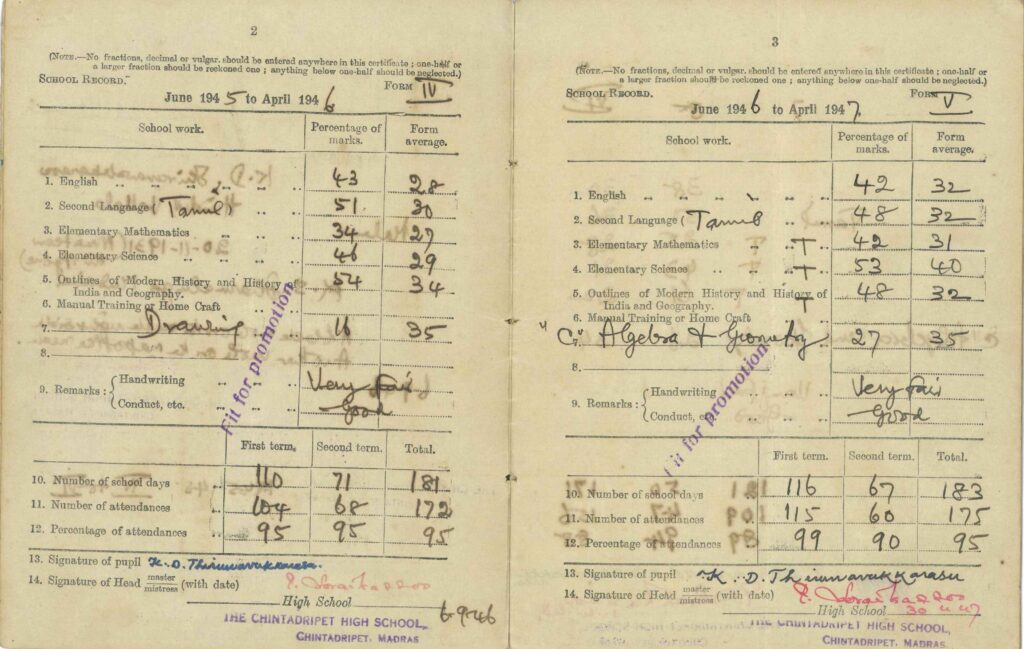 2
(NOTE.—No fractions, decimal or vulgar, should be entered anywhere in this certificate; one-half or
a larger fraction should be reckoned one; anything below one-half should be neglected.)
SCHOOL RECORD.
FORM IV
June 1945 to April 1946
School work. Percentage of marks. Form average.
1. English 43 28
2. Second Language (Tamil) 51 30
3. Elementary Mathematics 34 27
4. Elementary Science 46 29
5. Outlines of Modern History and History of India and Geography. 54 34
6. Manual Training or Home Craft
7. Drawing 16 35
8.
9. Remarks: Handwriting Very fair
Conduct, etc. Good
Fit for promotion
First term. Second term. Total.
10. Number of school days 110 71 181
11. Number of attendances 104 68 172
12. Percentage of attendances 95 95 95
13. Signature of pupil K. D. Thirunavukkarasu
14. Signature of Head master/mistress (with date)
High School
6-9-46
THE CHINTADRIPET HIGH SCHOOL,
CHINTADRIPET, MADRAS
3
(NOTE.—No fractions, decimal or vulgar, should be entered anywhere in this certificate; one-half or
a larger fraction should be reckoned one; anything below one-half should be neglected.)
SCHOOL RECORD.
FORM V
June 1946 to April 1947.
School work. Percentage of marks. Form average.
1. English 42 32
2. Second Language (Tamil 48 32
3. Elementary Mathematics 42 31
4. Elementary Science 53 40
5. Outlines of Modern History and History of India and Geography. 48 32
6. Manual Training or Home Craft
7. "C" Algebra & Geometry 27 35
8.
9. Remarks: Handwriting Very fair
Conduct, etc. Good
Fit for promotion
First term. Second term. Total.
10. Number of school days 116 67 183
11. Number of attendances 115 60 175
12. Percentage of attendances 99 90 95
13. Signature of pupil K. D. Thirunavukkarasu
14. Signature of Head master/mistress (with date)
High School 30 4 47
THE CHINTADRIPET HIGH SCHOOL,
CHINTADRIPET, MADRAS